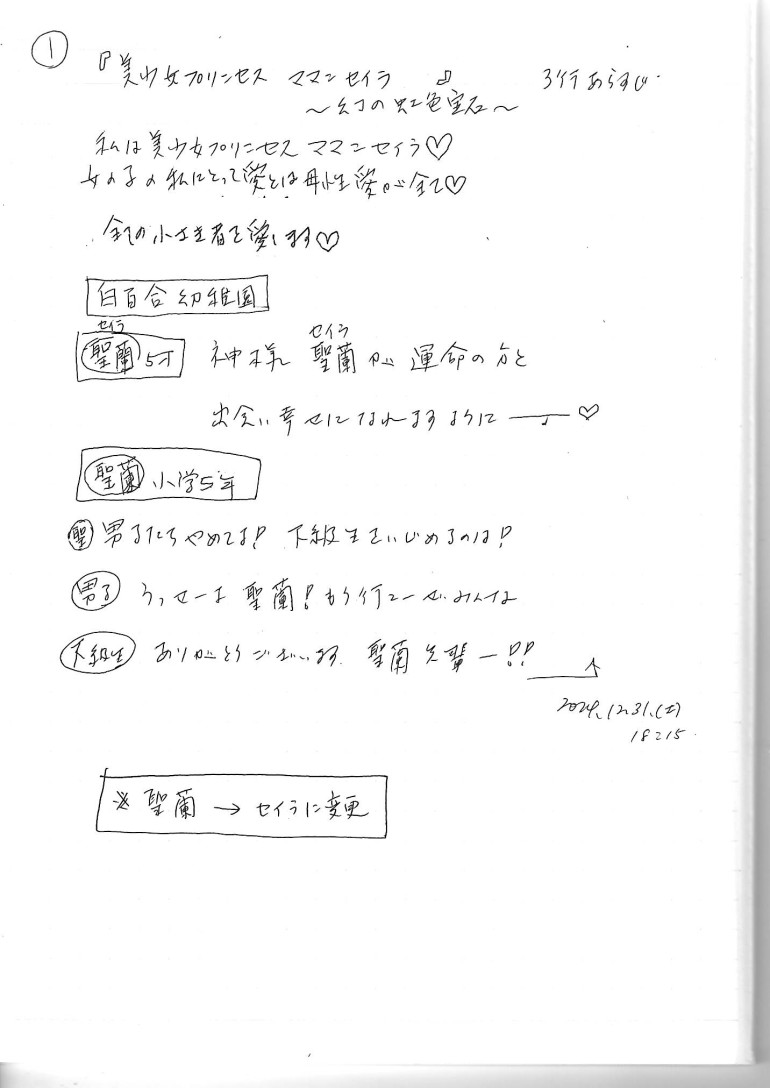 ①
『美少女プリンセス ママンセイラ 』 3行あらすじ
～幻の虹色宝石～
私は美少女プリンセス ママンセイラ♡
女の子の私にとって愛とは母性愛が全て♡
全ての小さき者を愛します♡
白百合幼稚園
セイラ セイラ
聖蘭 5才 神様 聖蘭が運命の方と
出会い幸せになれますように――♡
聖蘭 小学5年
聖 男子たちやめてよ! 下級生をいじめるのは!
男子 うっせーよ聖蘭! もう行こーぜみんな
下級生 ありがとうございます 聖蘭先輩ー!!
2024.12.31.(土)
18:15
※聖蘭 → セイラに変更